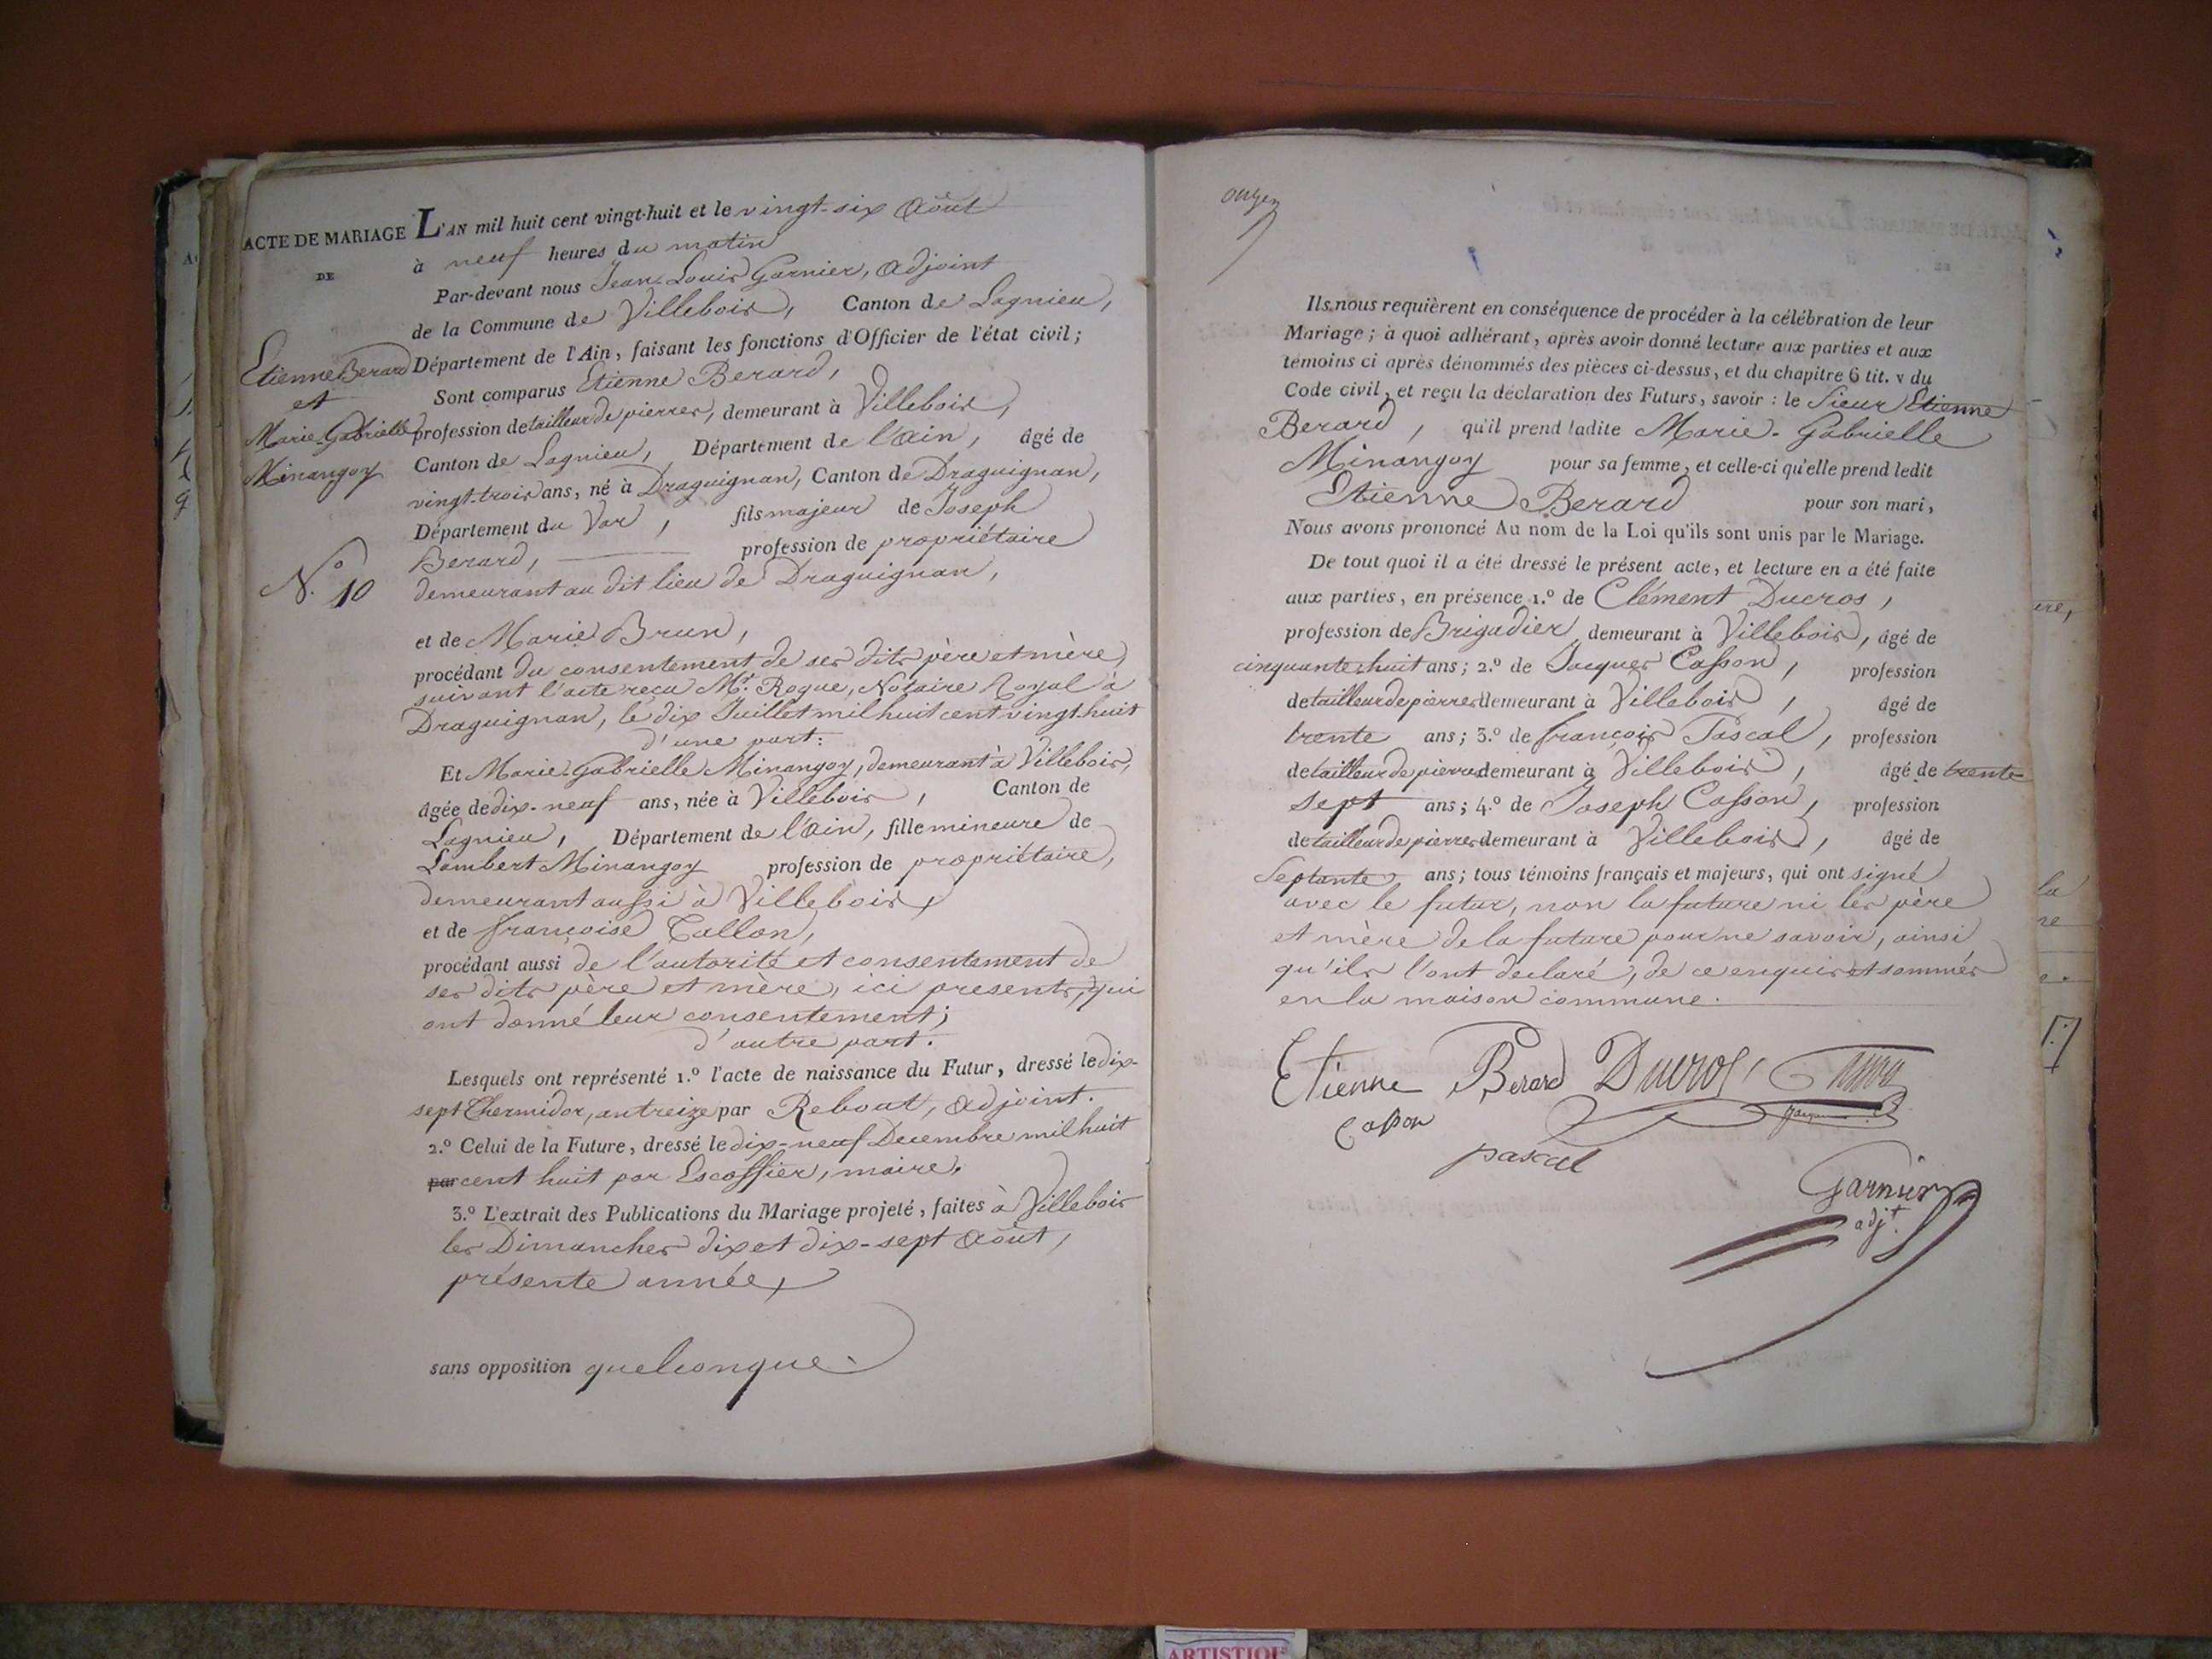 ACTE DE MARIAGE
DE
Etienne Berard
et
Marie-Gabrielle
Minangoy
N.° 10
L'AN mil huit cent vingt-huit et le vingt-six Août
à neuf heures du matin
Par-devant nous Jean-Louis Garnier, Adjoint
de la Commune de Villebois, Canton de Lagnieu,
Département de l'Ain, faisant les fonctions d'Officier de l'état civil;
Sont comparus Etienne Berard,
profession de tailleur de pierres, demeurant à Villebois,
Canton de Lagnieu, Département de l'Ain, âgé de
vingt-trois ans, né à Draguignan, Canton de Draguignan,
Département du Var, fils majeur de Joseph
Berard, profession de propriétaire
demeurant au dit lieu de Draguignan,
et de Marie Brun,
procédant du consentement de ses dits père et mère,
suivant l'acte reçu Mt. Roque, Notaire Royal à
Draguignan, le dix Juillet mil huit cent vingt-huit
d'une part:
Et Marie-Gabrielle Minangoy, demeurant à Villebois,
âgée de dix-neuf ans, née à Villebois, Canton de
Lagnieu, Département de l'Ain, fille mineure de
Lambert Minangoy profession de propriétaire,
demeurant aussi à Villebois,
et de françoise Tallon,
procédant aussi de l'autorité et consentement de
ses dits père et mère, ici presents, qui
ont donné leur consentement;
d'autre part.
Lesquels ont représenté 1.° l'acte de naissance du Futur, dressé le dix-
sept Thermidor, an treize par Rebout, Adjoint.
2.° Celui de la Future, dressé le dix-neuf Decembre mil huit
par cent huit par Escoffier, maire,
3.° L'extrait des Publications du Mariage projeté, faites à Villebois
les Dimanches dix et dix-sept Août,
présente année,
sans opposition quelconque.
onzen
Ils nous requièrent en conséquence de procéder à la célébration de leur
Mariage; à quoi adhérant, après avoir donné lecture aux parties et aux
témoins ci après dénommés des pièces ci-dessus, et du chapitre 6 tit. v du
Code civil, et reçu la déclaration des Futurs, savoir: le Sieur Etienne
Berard, qu'il prend ladite Marie-Gabrielle
Minangoy pour sa femme, et celle-ci qu'elle prend ledit
Etienne Berard pour son mari,
Nous avons prononcé Au nom de la Loi qu'ils sont unis par le Mariage.
De tout quoi il a été dressé le présent acte, et lecture en a été faite
aux parties, en présence 1.° de Clément Ducros,
profession de Brigadier demeurant à Villebois, âgé de
cinquante-huit ans; 2.° de Jacques Casson, profession
de tailleur de pierres demeurant à Villebois, âgé de
trente ans; 3.° de françois Pascal, profession
de tailleur de pierres demeurant à Villebois, âgé de trente
sept ans; 4.° de Joseph Casson, profession
de tailleur de pierres demeurant à Villebois, âgé de
Septante ans; tous témoins français et majeurs, qui ont signé
avec le futur, non la future ni les père
et mère de la future pour ne savoir, ainsi
qu'ils l'ont declaré, de ce enquis et sommés
en la maison commune.
Etienne Berard Ducros
Casson
pascal
Garnier
adjt.
ARTISTIQUE